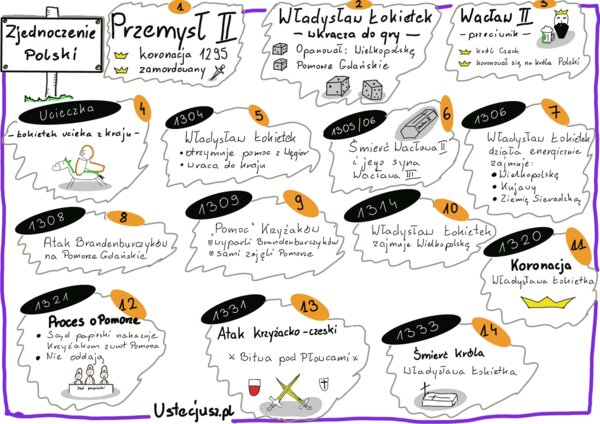 Zjednoczenie
Polski
1
Przemysł II
koronacja 1295
zamordowany
2
Władysław Łokietek
- wkracza do gry -
Opanował: Wielkopolskę
Pomorze Gdańskie
3
Wacław II
- przeciwnik -
król Czech
koronował się na króla Polski
Ucieczka
4
- Łokietek ucieka z kraju -
1304
5
Władysław Łokietek
• otrzymuje pomoc z Węgier
• wraca do kraju
1305/06
6
Śmierć Wacława II
i jego syna
Wacława III
1306
7
Władysław Łokietek
działa energicznie
zajmuje:
• Wielkopolskę
• Kujawy
• Ziemię Sieradzką
1308
8
Atak Brandenburczyków
na Pomorze Gdańskie
1309
9
"Pomoc" Krzyżaków
wyparli Brandenburczyków
sami zajęli Pomorze
1314
10
Władysław Łokietek
zajmuje Wielkopolskę
1320
11
Koronacja
Władysława Łokietka
1321
12
Proces o Pomorze
• Sąd papieski nakazuje
Krzyżakom zwrot Pomorza
• Nie oddają
Sąd papieski
1331
13
Atak Krzyżacko-czeski
x Bitwa pod Płowcami x
1333
14
Śmierć króla
Władysława Łokietka
Ustecjusz.pl